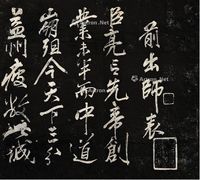 前出師表
臣亮言先帝創
業未半而中道
崩殂今天下三分
益州疲敝誠